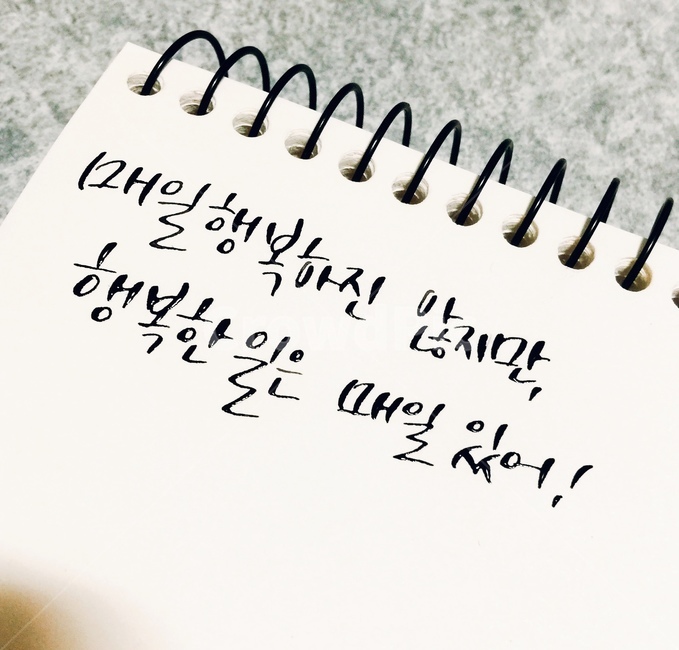 매일 행복하진 않지만,
행복한 일은 매일 있어!